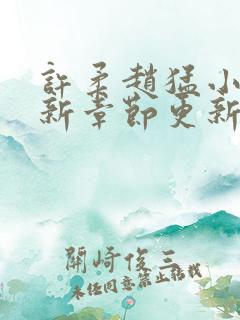 許柔趙猛小
新章節更新
關崎俊三
未經同意禁止轉載